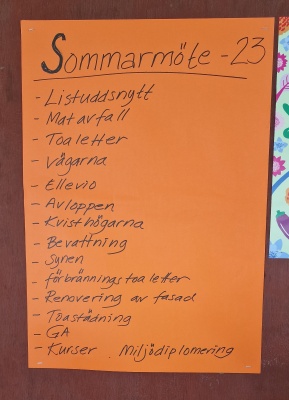 Sommarmöte - 23
- Listuddsnytt
- Matavfall
- Toaletter
- Vågarna
- Ellevio
- Avloppen
- Kvisthögarna
- Bevattning
- Synen
- förbränningstoaletter
- Renovering av fasad
- Toastädning
- GA
- Kurser . Miljödiplomering